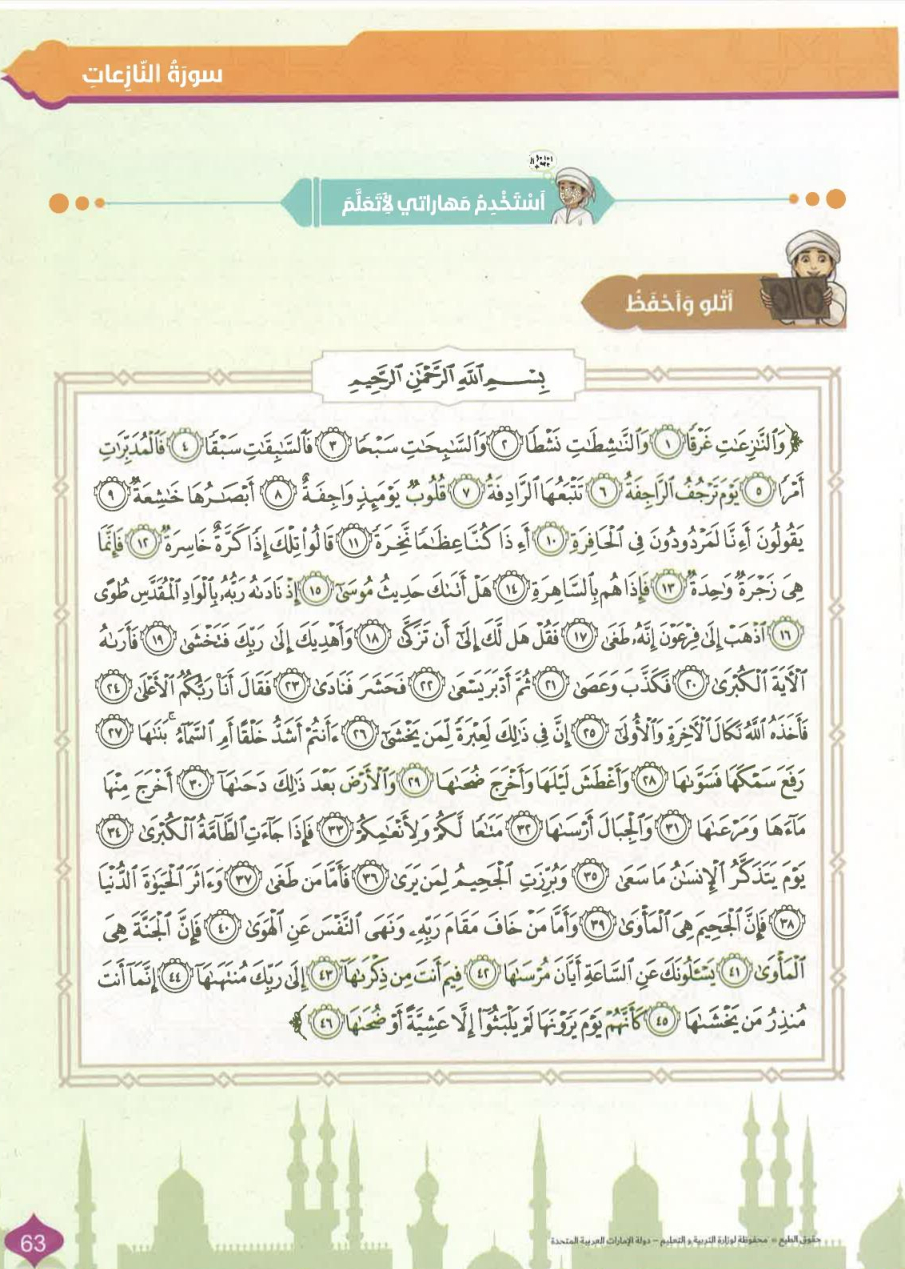 سورَةُ النّازِعاتِ
أَسْتَخْدِمُ مَهاراتي لِأَتَعَلَّمَ
أَتْلو وَأَحْفَظُ
بِسْمِ ٱللَّهِ ٱلرَّحْمَٰنِ ٱلرَّحِيمِ
﴿ وَٱلنَّٰزِعَٰتِ غَرْقًا ١ وَٱلنَّٰشِطَٰتِ نَشْطًا ٢ وَٱلسَّٰبِحَٰتِ سَبْحًا ٣ فَٱلسَّٰبِقَٰتِ سَبْقًا ٤ فَٱلْمُدَبِّرَٰتِ
أَمْرًا ٥ يَوْمَ تَرْجُفُ ٱلرَّاجِفَةُ ٦ تَتْبَعُهَا ٱلرَّادِفَةُ ٧ قُلُوبٌ يَوْمَئِذٍ وَاجِفَةٌ ٨ أَبْصَٰرُهَا خَٰشِعَةٌ ٩
يَقُولُونَ أَءِنَّا لَمَرْدُودُونَ فِي ٱلْحَافِرَةِ ١٠ أَءِذَا كُنَّا عِظَٰمًا نَّخِرَةً ١١ قَالُوا۟ تِلْكَ إِذًا كَرَّةٌ خَاسِرَةٌ ١٢ فَإِنَّمَا
هِيَ زَجْرَةٌ وَٰحِدَةٌ ١٣ فَإِذَا هُم بِٱلسَّاهِرَةِ ١٤ هَلْ أَتَىٰكَ حَدِيثُ مُوسَىٰٓ ١٥ إِذْ نَادَىٰهُ رَبُّهُۥ بِٱلْوَادِ ٱلْمُقَدَّسِ طُوًى
١٦ ٱذْهَبْ إِلَىٰ فِرْعَوْنَ إِنَّهُۥ طَغَىٰ ١٧ فَقُلْ هَل لَّكَ إِلَىٰٓ أَن تَزَكَّىٰ ١٨ وَأَهْدِيَكَ إِلَىٰ رَبِّكَ فَتَخْشَىٰ ١٩ فَأَرَىٰهُ
ٱلْءَايَةَ ٱلْكُبْرَىٰ ٢٠ فَكَذَّبَ وَعَصَىٰ ٢١ ثُمَّ أَدْبَرَ يَسْعَىٰ ٢٢ فَحَشَرَ فَنَادَىٰ ٢٣ فَقَالَ أَنَا۠ رَبُّكُمُ ٱلْأَعْلَىٰ ٢٤
فَأَخَذَهُ ٱللَّهُ نَكَالَ ٱلْءَاخِرَةِ وَٱلْأُولَىٰٓ ٢٥ إِنَّ فِي ذَٰلِكَ لَعِبْرَةً لِّمَن يَخْشَىٰٓ ٢٦ ءَأَنتُمْ أَشَدُّ خَلْقًا أَمِ ٱلسَّمَآءُ ۚ بَنَىٰهَا ٢٧
رَفَعَ سَمْكَهَا فَسَوَّىٰهَا ٢٨ وَأَغْطَشَ لَيْلَهَا وَأَخْرَجَ ضُحَىٰهَا ٢٩ وَٱلْأَرْضَ بَعْدَ ذَٰلِكَ دَحَىٰهَآ ٣٠ أَخْرَجَ مِنْهَا
مَآءَهَا وَمَرْعَىٰهَا ٣١ وَٱلْجِبَالَ أَرْسَىٰهَا ٣٢ مَتَٰعًا لَّكُمْ وَلِأَنْعَٰمِكُمْ ٣٣ فَإِذَا جَآءَتِ ٱلطَّآمَّةُ ٱلْكُبْرَىٰ ٣٤
يَوْمَ يَتَذَكَّرُ ٱلْإِنسَٰنُ مَا سَعَىٰ ٣٥ وَبُرِّزَتِ ٱلْجَحِيمُ لِمَن يَرَىٰ ٣٦ فَأَمَّا مَن طَغَىٰ ٣٧ وَءَاثَرَ ٱلْحَيَوٰةَ ٱلدُّنْيَا
٣٨ فَإِنَّ ٱلْجَحِيمَ هِيَ ٱلْمَأْوَىٰ ٣٩ وَأَمَّا مَنْ خَافَ مَقَامَ رَبِّهِۦ وَنَهَى ٱلنَّفْسَ عَنِ ٱلْهَوَىٰ ٤٠ فَإِنَّ ٱلْجَنَّةَ هِيَ
ٱلْمَأْوَىٰ ٤١ يَسْـَٔلُونَكَ عَنِ ٱلسَّاعَةِ أَيَّانَ مُرْسَىٰهَا ٤٢ فِيمَ أَنتَ مِن ذِكْرَىٰهَآ ٤٣ إِلَىٰ رَبِّكَ مُنتَهَىٰهَآ ٤٤ إِنَّمَآ أَنتَ
مُنذِرُ مَن يَخْشَىٰهَا ٤٥ كَأَنَّهُمْ يَوْمَ يَرَوْنَهَا لَمْ يَلْبَثُوٓا۟ إِلَّا عَشِيَّةً أَوْ ضُحَىٰهَا ٤٦ ﴾
حقوق الطبع © محفوظة لوزارة التربية و التعليم – دولة الإمارات العربية المتحدة
63